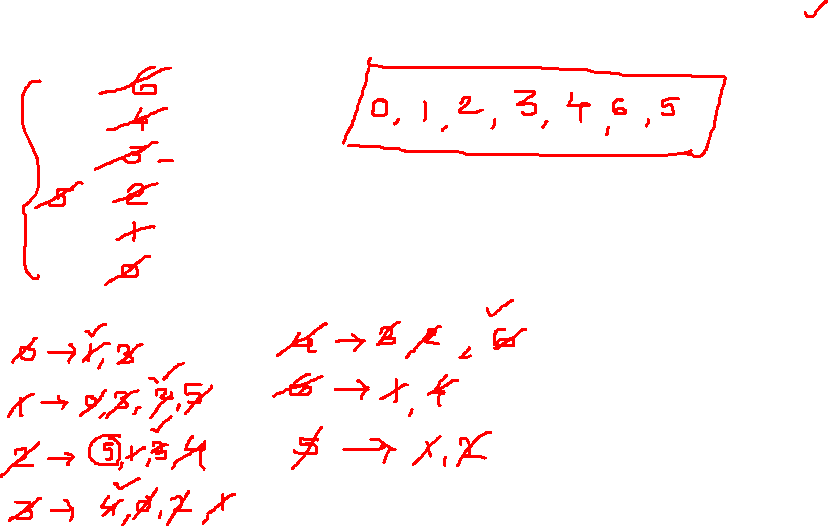 6
4
3
5 2
1
0
0, 1, 2, 3, 4, 6, 5
0 → 1, 3
1 → 0, 3, 2, 5
2 → 5, 1, 3, 4
3 → 4, 0, 2, 1
4 → 3, 2, 6
6 → 1, 4
5 → 1, 2